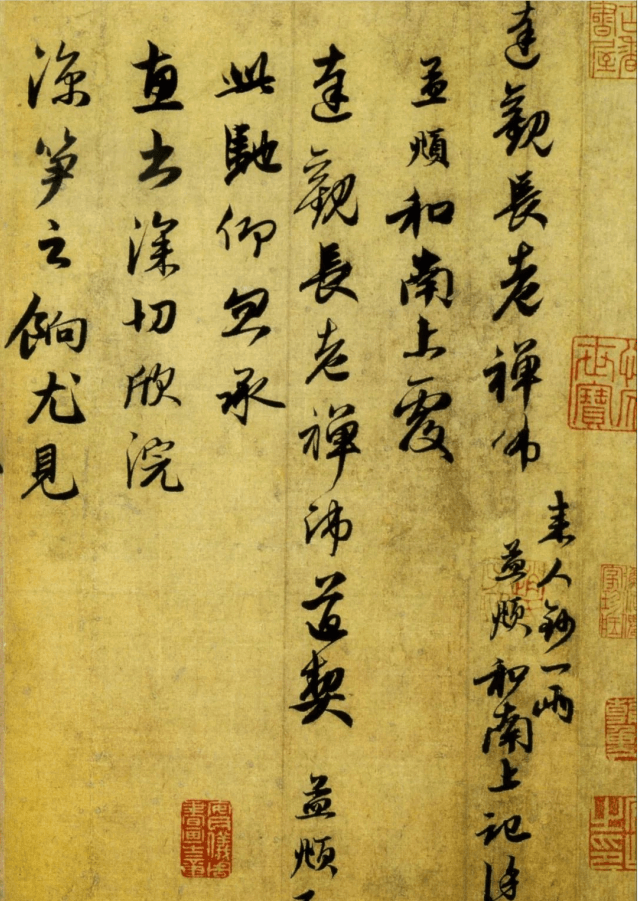 達觀長老禪师
来人鈔一兩
孟頫和南上記
孟頫和南上覆
達觀長老禪师道契 孟頫
比馳仰忽承
惠書深切欣浣
凉笋之餉尤見